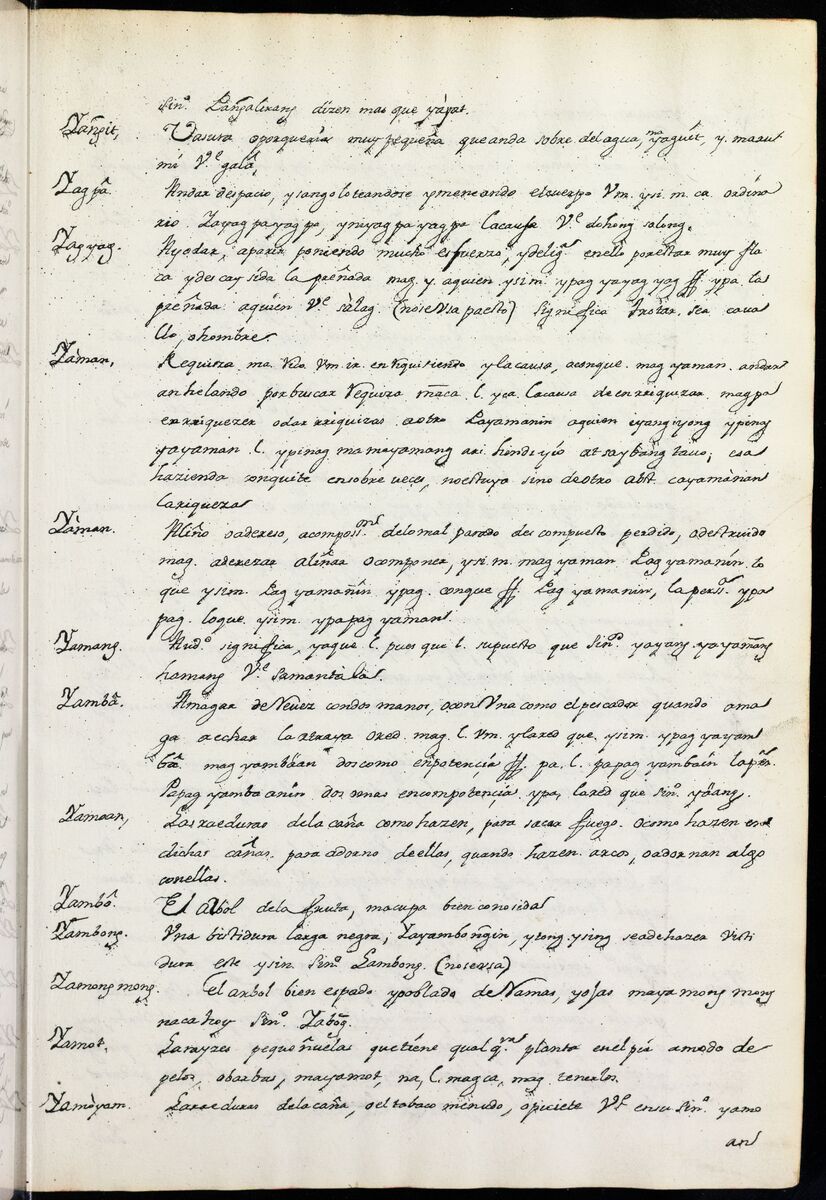 Sin.o Pañgalirang dizen mas que yàyat.
Yañgit, Vasura oporqueria muy pequeña queanda sobre delagua, ma yaguit, y. maxut
mi V.e galâ,
Yagpâ. Andar despacio, y sangoloteandose ymeneando elcuerpo Vm. ysi. m. ca. ordina
rio. Zayagpayagpa, yniyagpayagpa Lacausa V.e dohong solong.
Yagyag. Ayudar, aparir poniendo mucho esfuerzo, ydelig.a enello porestar muy fla
ca ydescaysida la preñada mag. y. aquien ysim. ypagyayagyag ff. ypa. las
preñada aquien V.e sàlag (noseVsa paesto) significa trotar. sea cava
llo, ohombre.
Yàman, Requisza, ma. Rico. Vm. ir. enriquisiendo ylacausa, aconque. mag yaman. andar
anhelando porbuscar requeza maca. l. yca. Lacausa deenriquizar. magpa
enrriquezer odar rriquizas aotro Payamanin aquien
yayaman. l. ypinag mamayamang ari. hindi yio at saybang tavo; esa
hazienda conquite ensobreveces, noestuya sino deotro abt. cayamànan
Lariquezas
Yàman. Aliño oadereso, acomposi.on delomal parado descompuesto perdido, odestruido
mag. aderezar aliñar ocomponer, ysi. m. magyaman Pagyamanin. lo
que ysim. Pagyamañin ypag. conque ff. Pagyamanin, lapers.a ypa
pag. loque. ysim. ypapagyaman.
Yamang. Aud.o significa, yaque l. pues que l. supuesto que Sin.o yayang. yayamang
hamang V.e Samantàla.
Yambâ. Amagar deReves condos manos, oconVna como elpescador quando ama
ga aechar lataraya ored. mag. l. Vm. ylared que. ysim. ypagyayam
bâ. magyambâan doscomo enpotencia ff. pa. l. papagyambain laper.a
Papagyambaanin dos Vnas encompotencia. ypa, lared que Sin.o yâang.
Yamoan, Lasraeduras delacaña comohazen, para sacar fuego. ocomo hazen ende
dichas cañas. para adorno deellas, quando hazen. arcos, oadornan algo
conellas.
Yambô. El Arbol dela fruta, macupa bien conosida
Yambong. Vna bistidura larga negra, Zayamboñgin, ytong. ysing seadehazer Visti
dura este ysin. Sin.o Lambong. (noseVsa)
Yamongmong. El arbol bien espado ypoblado deRamas, yojas mayamongmong
nacahoy Sin.o Yabog.
Yamot. Larayzes pequeñuelas quetiene qualq.ra planta enelpie amodo de
pelos, obarbas, mayamot, na, l. magca, mag. tenerlos.
Yamòyam. Laraeduras delacaña, oeltabaco menudo, opiciete V.e ensu Sin.o yamo
an